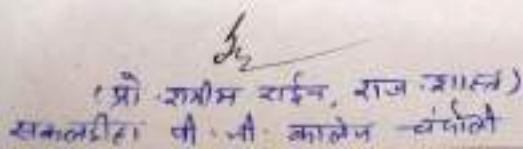 (प्रो. शमीम राईन, राज. शास्त्र)
सकलडीहा पी. जी. कालेज चंदौली